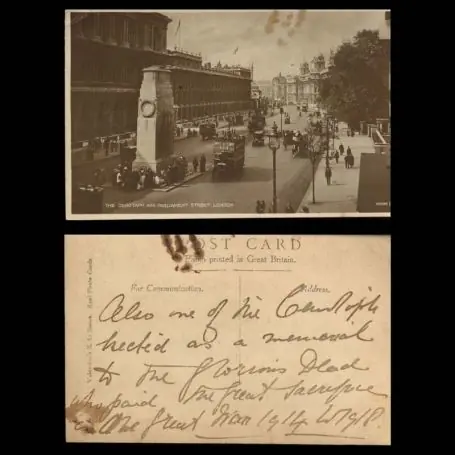 THE CENOTAPH AND PARLIAMENT STREET, LONDON
POST CARD
Photo printed in Great Britain.
For Communication.
Address.
Valentine's
Real Photo Cards
Also one of the Cenotaph
hected as a memorial
to the Glorious Dead
who paid the great Sacrifice
in the Great War 1914 to 1918.